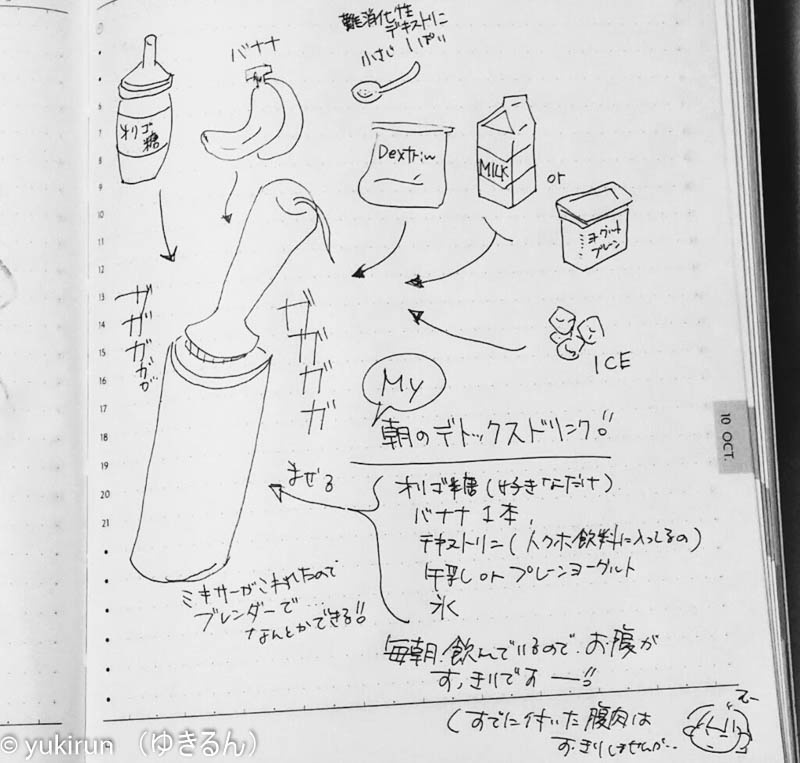 難消化性
デキストリン
小さじ1ぱい
バナナ
オリゴ糖
Dextrin
MILK
or
ヨーグルト
プレーン
ICE
6
7
8
9
10
11
12
13
14
15
16
17
18
19
20
21
ガガガガガ
ガガガガ
My
朝のデトックスドリンク!!
まぜる
オリゴ糖(好きなだけ)
バナナ1本,
デキストリン(トクホ飲料に入ってるの)
牛乳 or プレーンヨーグルト
氷
ミキサーがこわれたので
ブレンダーで…
なんとかできる!!
毎朝.飲んでいるので.お腹が
すっきりです ー!!
(すでに付いた腹肉は
すっきりしませんが..
10 OCT.
© yukirun (ゆきるん)